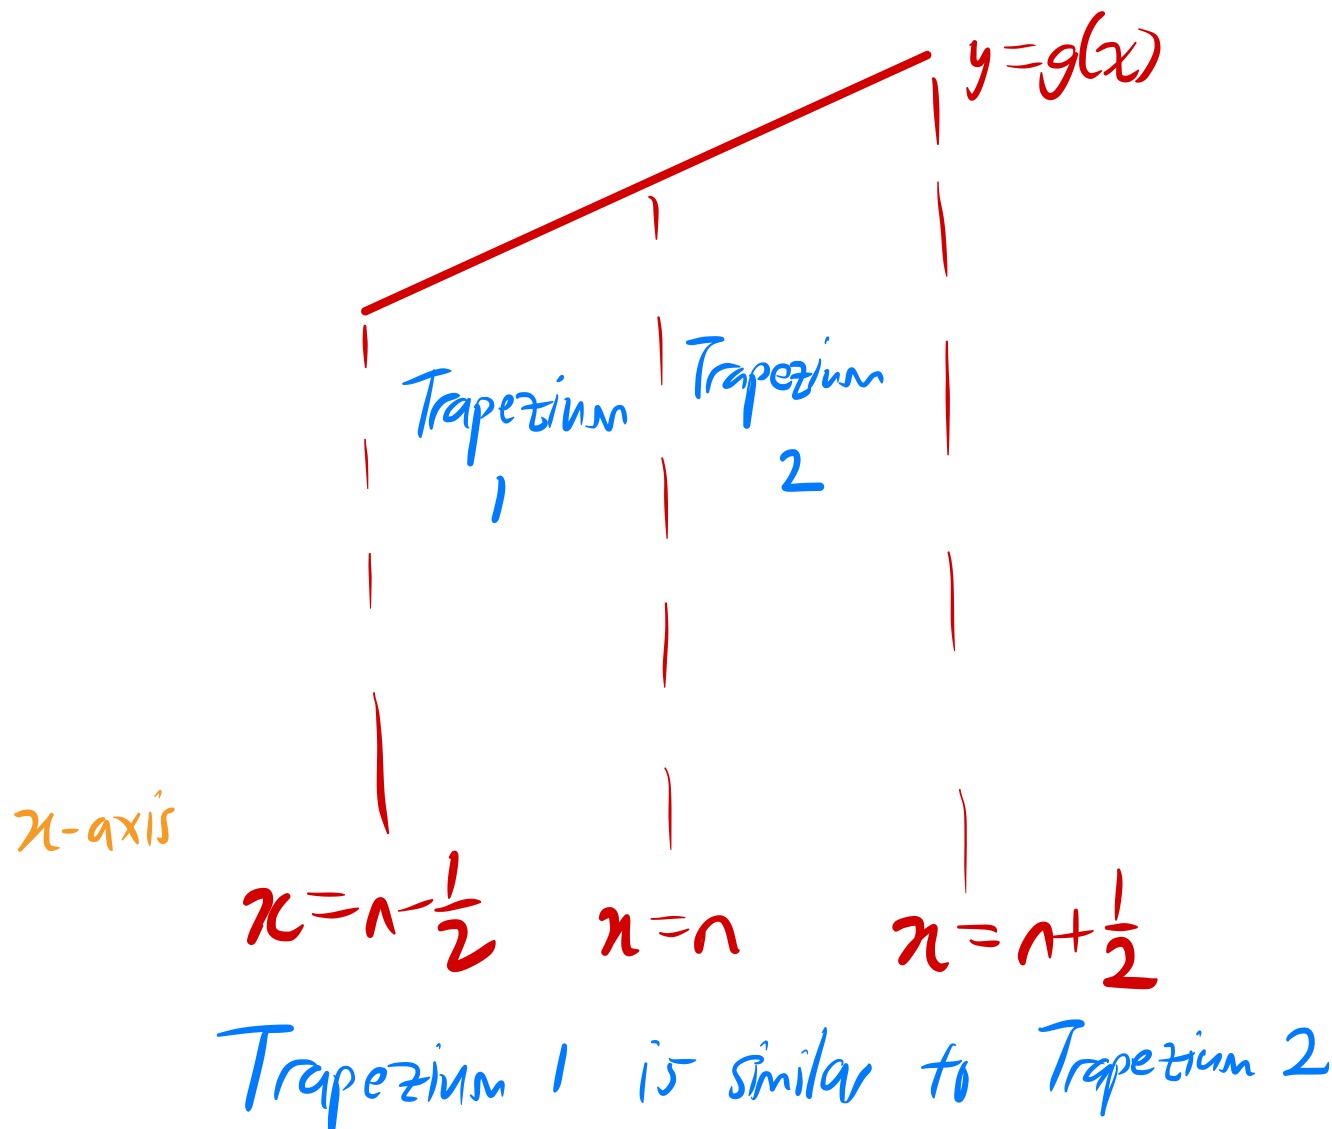 y=g(x)
Trapezium
1
Trapezium
2
x-axis
x=n-1/2
x=n
x=n+1/2
Trapezium 1 is similar to Trapezium 2